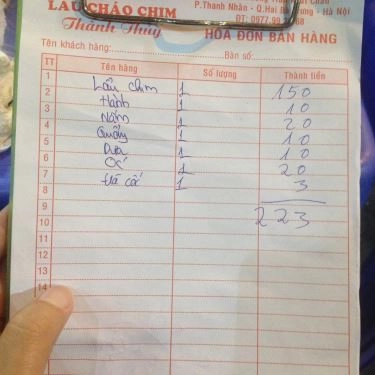 LẨU CHÁO CHIM
Thanh Thủy
P.Thanh Nhàn - Q.Hai Bà Trưng - Hà Nội
HÓA ĐƠN BÁN HÀNG
Tên khách hàng: Bàn số:
TT Tên hàng Số lượng Thành tiền
1 Lẩu chim 1 150
2 Hành 1 10
3 Nấm 1 20
4 Quẩy 1 10
5 Dưa 1 10
6 Óc 1 20
7 Đá cốc 1 3
8
9 223
10
11
12
13
14